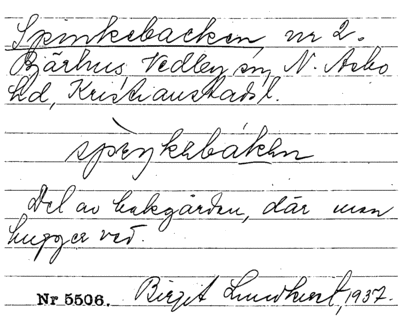 Spinkebacken nr 2.
Bjärhus, Vedby sn, N. Åsbo
hd, Kristianstads l.
speŋkebáken
Del av bakgården, där man
hugger ved.
Nr 5506. Birgit Lundkvist, 1937.